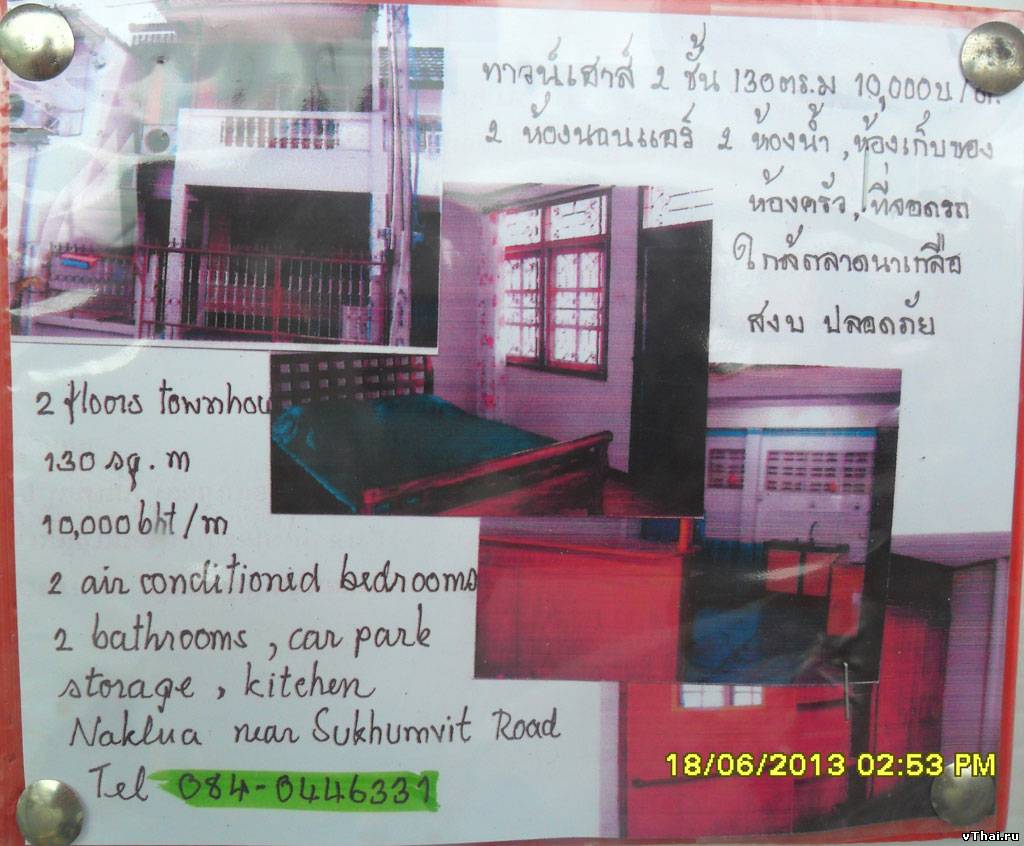 ทาวน์เฮาส์ 2 ชั้น 130 ตร.ม 10,000บ/ด.
2 ห้องนอนแอร์ 2 ห้องน้ำ, ห้องเก็บของ
ห้องครัว, ที่จอดรถ
ใกล้ตลาดนาเกลือ
สงบ ปลอดภัย
2 floors townhou
130 sq. m
10,000 bht/m
2 air conditioned bedrooms
2 bathrooms, car park
storage, kitchen
Naklua near Sukhumvit Road
Tel 084-0446331
18/06/2013 02:53 PM
vThai.ru